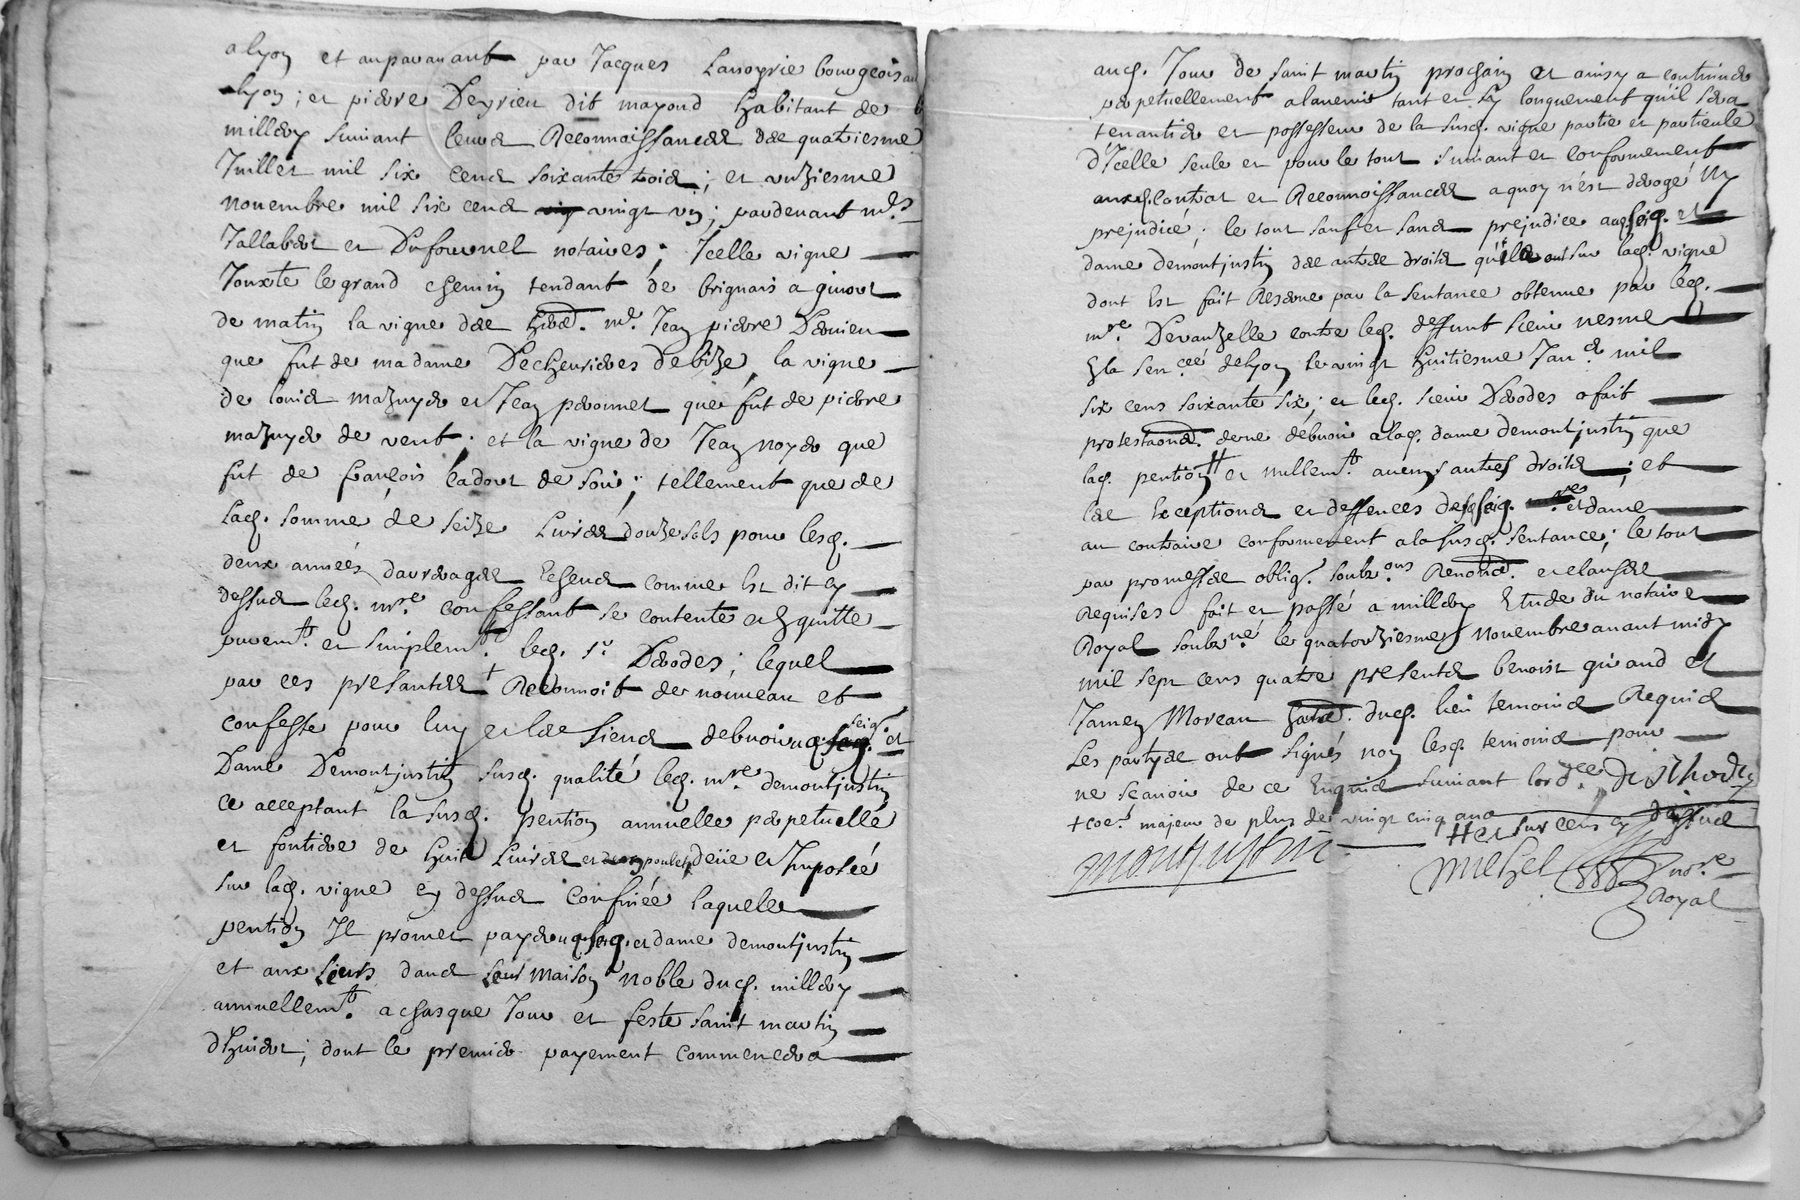 a lyon et auparavant par Jacques Lanoyrie bourgeois au
lyon ; et pierre Deyrieu dit mayoud habitant de
millery suivant leurs Reconnoissances des quatriesme
Juillet mil six cens soixante trois ; et unziesme
novembre mil six cens vingt un ; pardevant mes
Tallabar et Dufournel notaires ; Icelle vigne
Jouxte le grand chemin tendant de brignais a givort
de matin la vigne des hers. me. Jean pierre Dervieu
que fut de madame Decheurieres de bize, la vigne
de louis mazuyer et Jean peronnet que fut de pierre
mazuyer de vent ; et la vigne de Jean noyer que
fut de françois ladour de soir ; tellement que de
lad. somme de seize Livres douze sols pour lesd.
deux années d'arrerages Echeus comme Est dit cy
dessus led. mre. confessant se contente et quitte
puremt. et simplemt. led. sr. Derodes ; lequel
par ces presantes + Reconnoit de nouveau et
confesse pour luy et les siens debvoir aud. seigr. et
Dame Demontjustin susd. qualité led. mre demontjustin
ce acceptant la susd. pention annuelle perpetuelle
et fontiere de huit Livres et poulets deüe et Imposée
sur lad. vigne cy dessus confinée laquelle
pention Il promet payer aud. seig. et dame demontjustin
et aux sieurs dans leur maison noble dud. millery
annuellemt. a chasque Jour et feste saint martin
d'hiver ; dont le premier payement commencera
aud. Jour de saint martin prochain et ainsy a continuer
perpetuellement a l'avenir tant et sy longuement qu'il sera
tenantier et possesseur de la susd. vigne partie et particule
d'Icelle seule et pour le tout suivant et conformement
auxd. contrat et Reconnoissances a quoy n'est derogé Ny
prejudicé ; le tout sauf et sans prejudice aud. seig. et
dame demontjustin des autres droits qu'ils ont sur lad. vigne
dont Est fait Reserve par la sentance obtenue par led.
mre. Devauzelle contre led. deffunt sieur nesme
En la sencée de lyon le vingt huitiesme Janr. mil
six cens soixante six ; et led. sieur Derodes a fait
protestaons. de ne debvoir a lad. dame demontjustin que
lad. pention # et nullemt. aucuns autres droits ; et
les Exceptions et deffences desd. seig. et dame
au contraire conformement a la susd. sentance ; le tout
par promesses oblig. soubz.ons Renons. et clauses
Requises fait et passé a millery Etude du notaire
Royal soubzné. le quatorziesme novembre avant midy
mil sept cens quatre presents benoist giraud et
James Moreau habts. dud. lieu temoins Requis
Les partyes ont signés non lesd. temoins pour
ne scavoir de ce Enquis suivant lordce. De Rhodes
+ coe. majeur de plus de vingt cinq ans
# et sur cens cy dessus
montjustin
Michel nore.
Royal